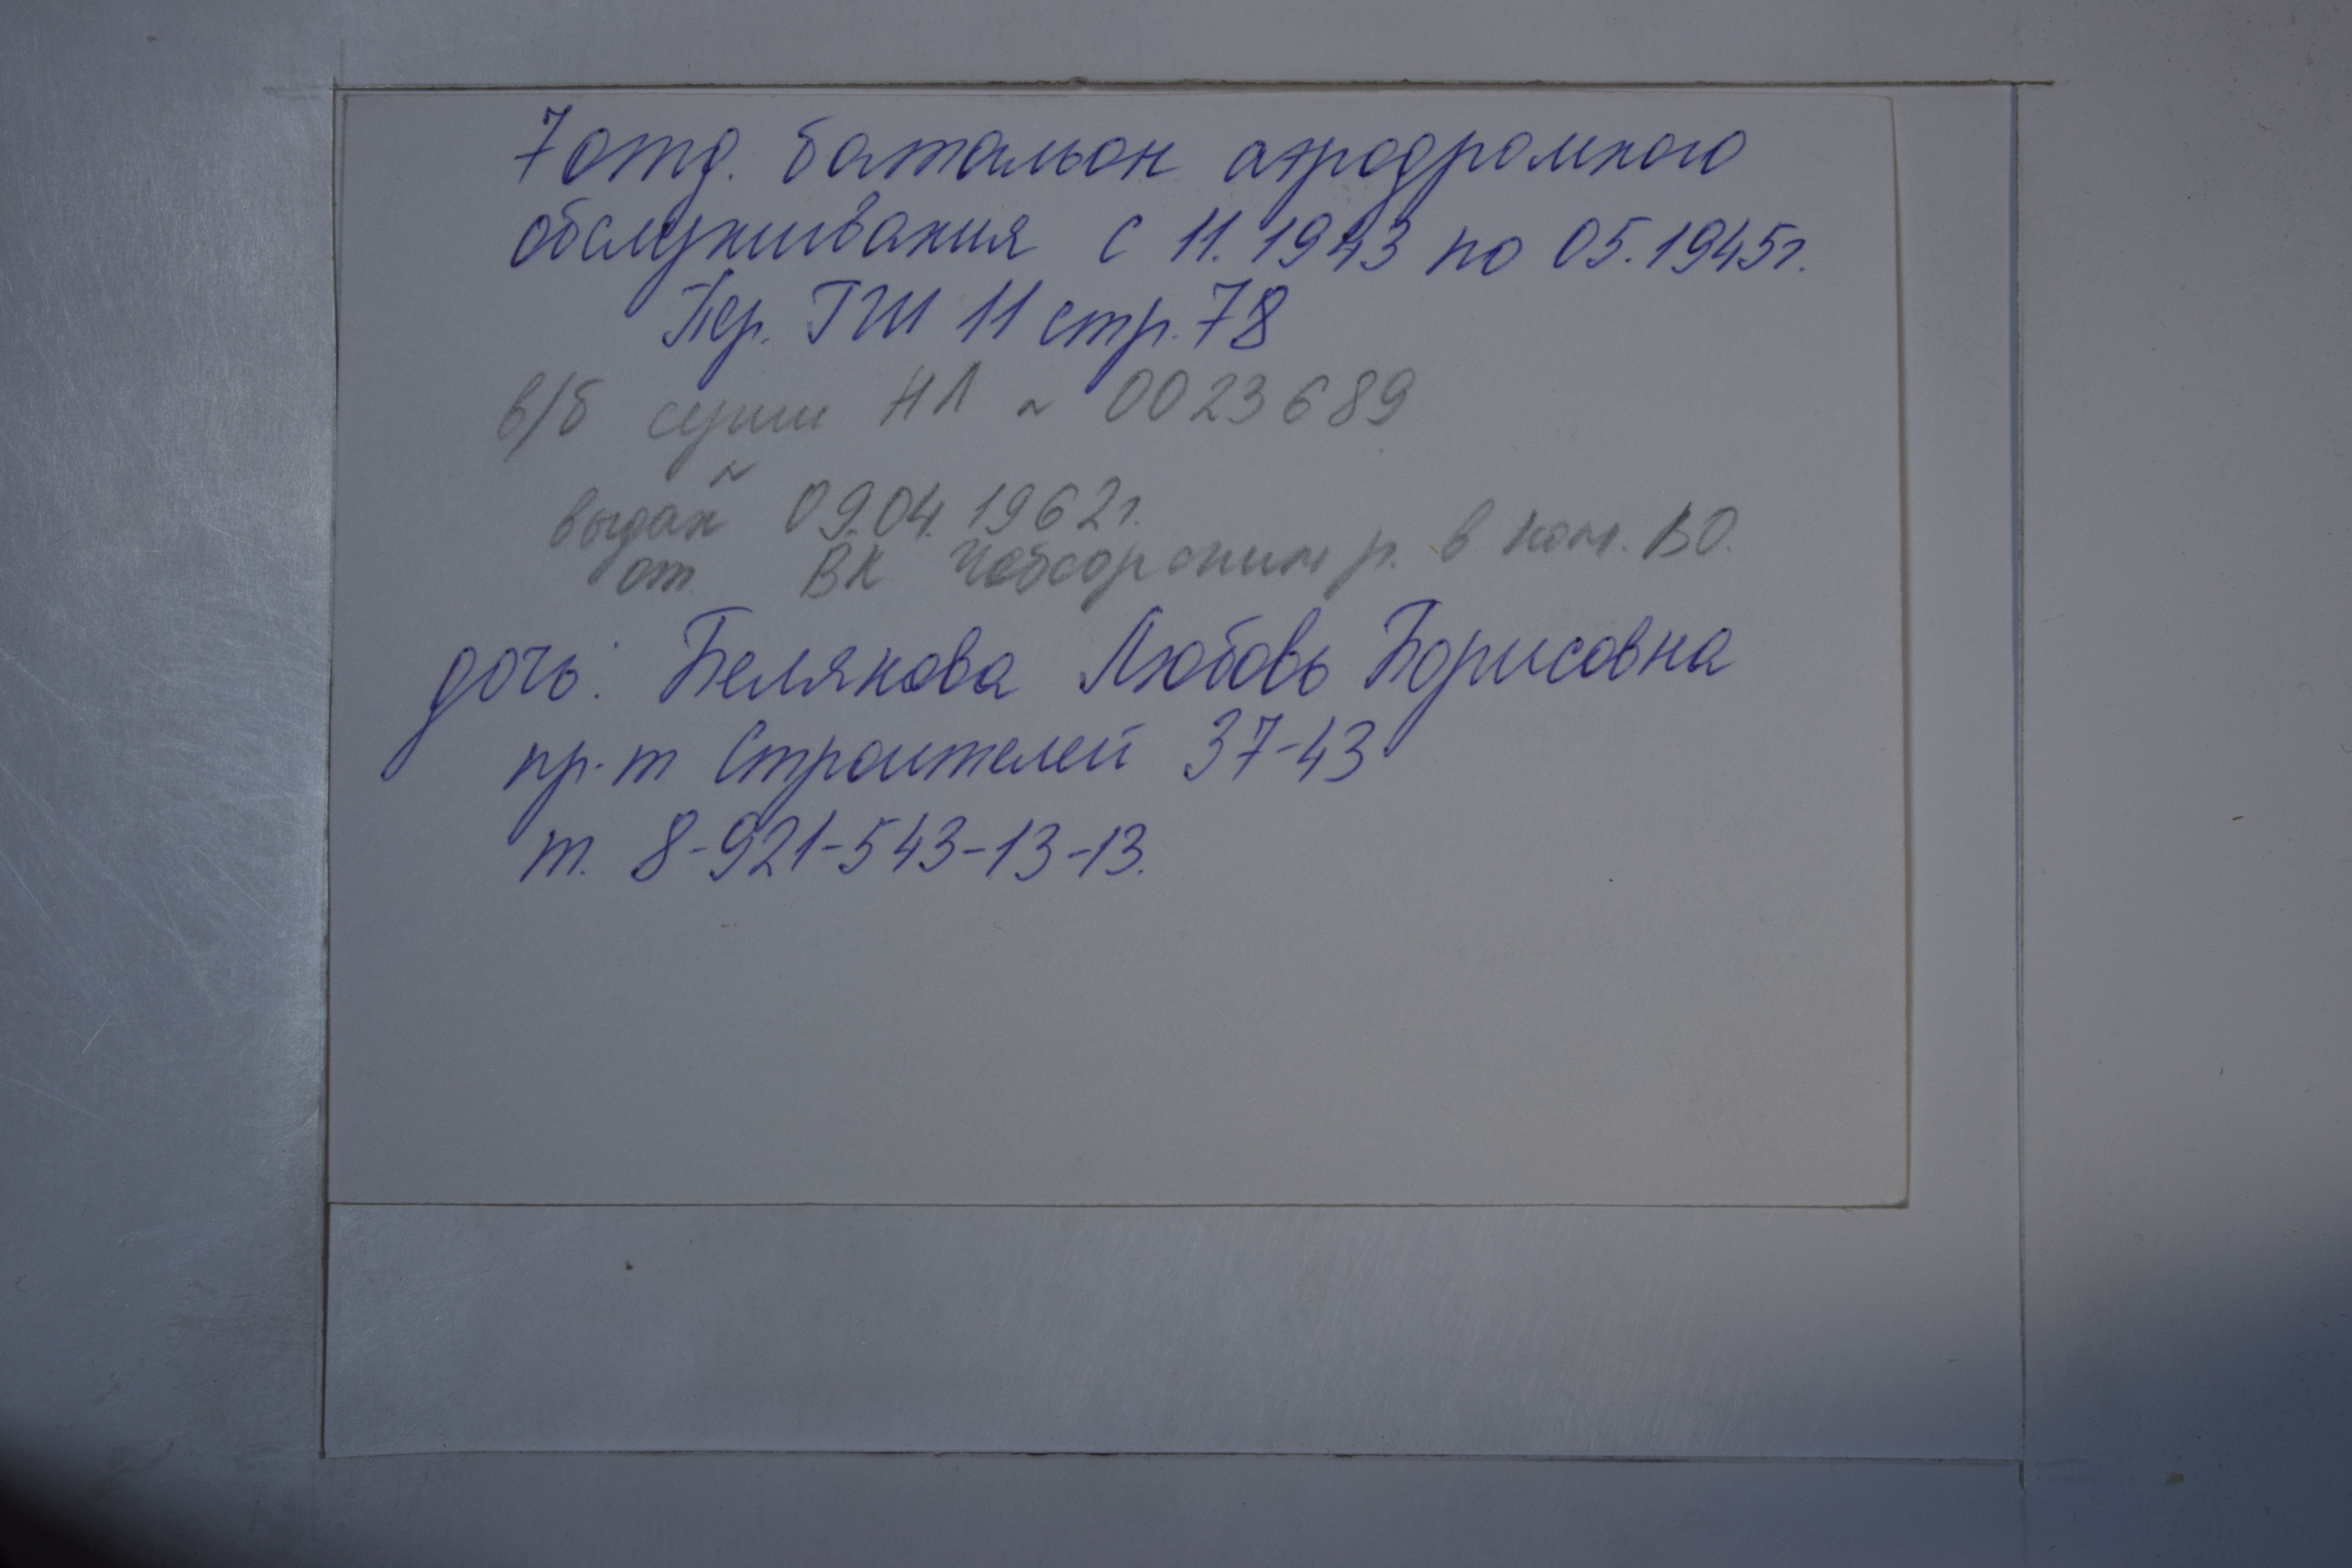 7 отд. батальон аэродромного
обслуживания с 11.1943 по 05.1945г.
Пер. ГШ 11 стр. 78
в/б серии НЛ ~ 0023689
выдан 09.04.1962г.
от ВК р. в ВО.
дочь: Белякова Любовь Борисовна
пр-т Строителей 37-43
т. 8-921-543-13-13.